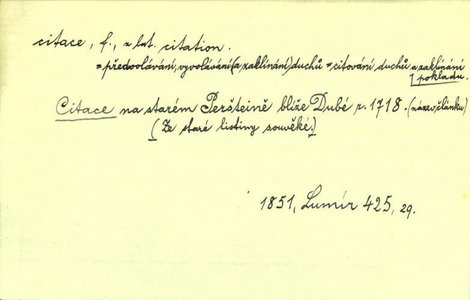 citace, f., z lat. citation.
= předvolávání, vyvolávání (a zaklínání) duchů = citování duchů a zaklínání
pokladu.
Citace na starém Peršteině blíže Dubé r. 1718. (název článku)
(Ze staré listiny souvěké.)
1851, Lumír 425, 29.